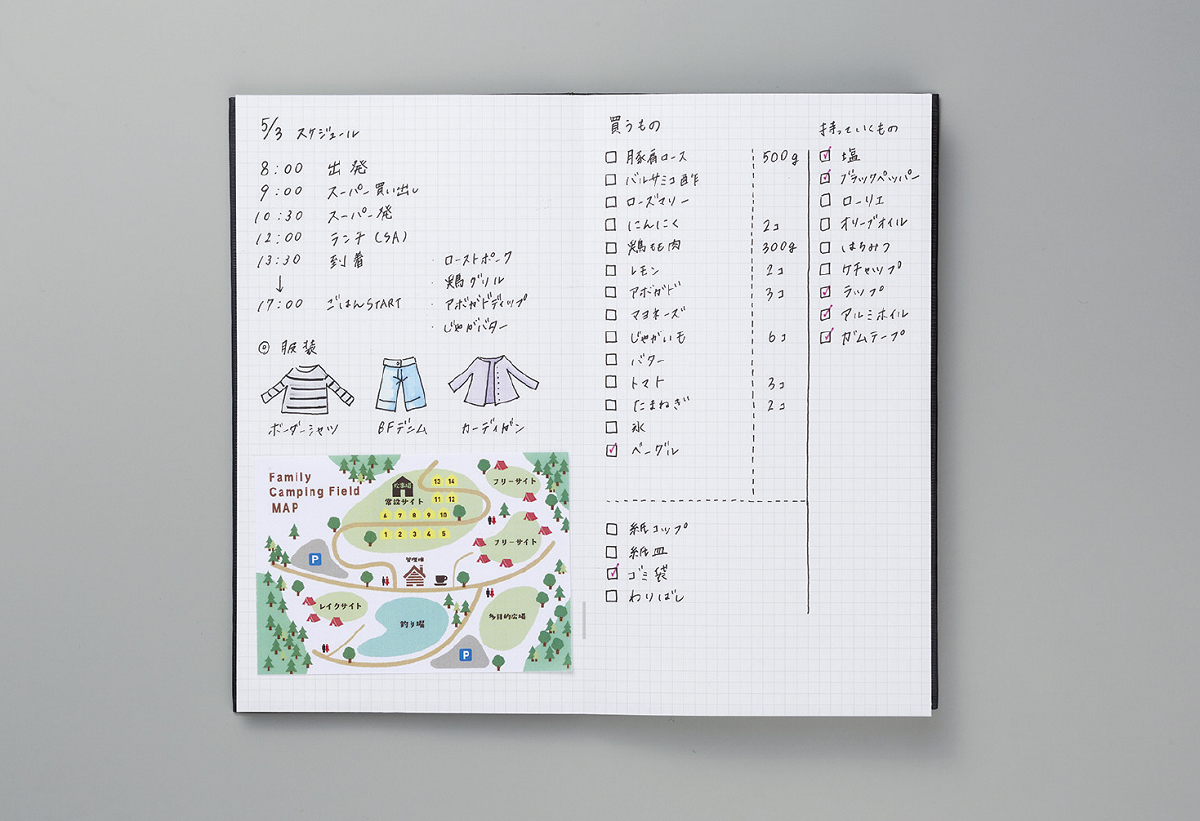 5/3 スケジュール
8:00 出発
9:00 スーパー買い出し
10:30 スーパー発
12:00 ランチ(SA)
13:30 到着
↓
17:00 ごはんSTART
・ローストポーク
・鶏グリル
・アボガドディップ
・じゃがバター
◎ 服装
ボーダーシャツ BFデニム カーディガン
Family
Camping Field
MAP
炊事場
常設サイト
13 14
11 12
6 7 8 9 10
1 2 3 4 5
フリーサイト
フリーサイト
P
管理棟
レイクサイト
釣り場
多目的広場
P
買うもの
□ 豚肩ロース 500g
□ バルサミコ酢
□ ローズマリー
□ にんにく 2コ
□ 鶏もも肉 300g
□ レモン 2コ
□ アボガド 3コ
□ マヨネーズ
□ じゃがいモ 6コ
□ バター
□ トマト 3コ
□ たまねぎ 2コ
□ 氷
☑ ベーグル
□ 紙コップ
□ 紙皿
☑ ゴミ袋
□ わりばし
持っていくもの
☑ 塩
☑ ブラックペッパー
□ ローリエ
□ オリーブオイル
□ はちみつ
□ ケチャップ
☑ ラップ
☑ アルミホイル
☑ ガムテープ